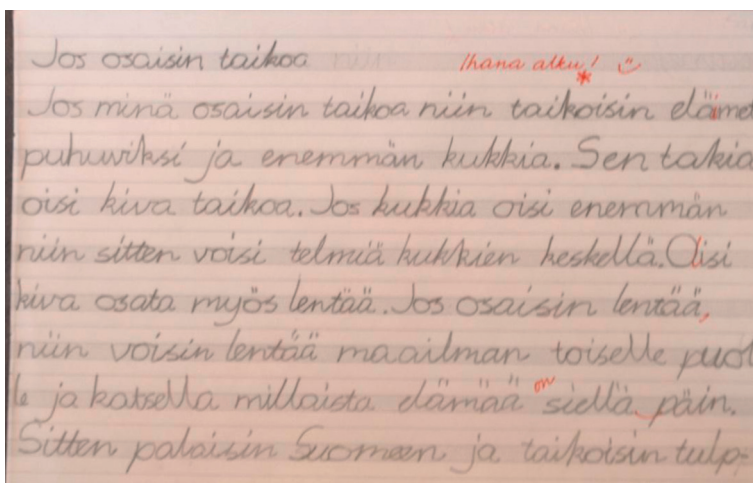 Jos osaisin taikoa Ihana alku! ☺
*
Jos minä osaisin taikoa niin taikoisin eläimet
puhuviksi ja enemmän kukkia. Sen takia
oisi kiva taikoa. Jos kukkia oisi enemmän
niin sitten voisi telmiä kukkien keskellä. Olisi
kiva osata myös lentää. Jos osaisin lentää,
niin voisin lentää maailman toiselle puol
le ja katsella millaista elämää on siellä päin.
Sitten palaisin Suomeen ja taikoisin tulp-